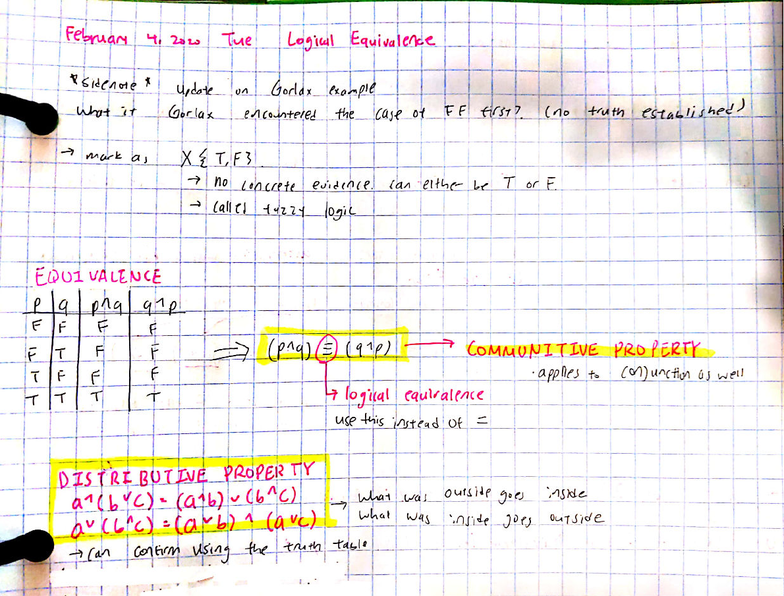 February 4, 2020 Tue Logical Equivalence
*Sidenote* update on Gorlax example
What if Gorlax encountered the case of FF first? (no truth established)
→ mark as X { T, F }
→ no concrete evidence. can either be T or F.
→ called fuzzy logic
EQUIVALENCE
p q p^q q^p
F F F F
F T F F
T F F F
T T T T
⇒ (p^q) ≡ (q^p) → COMMUNITIVE PROPERTY
· applies to conjunction as well
↳ logical equivalence
use this instead of =
DISTRIBUTIVE PROPERTY
a^(b v c) = (a^b) v (b^c)
a v (b^c) = (a v b) ^ (a v c)
→ What was outside goes inside
What was inside goes outside
→ can confirm using the truth table